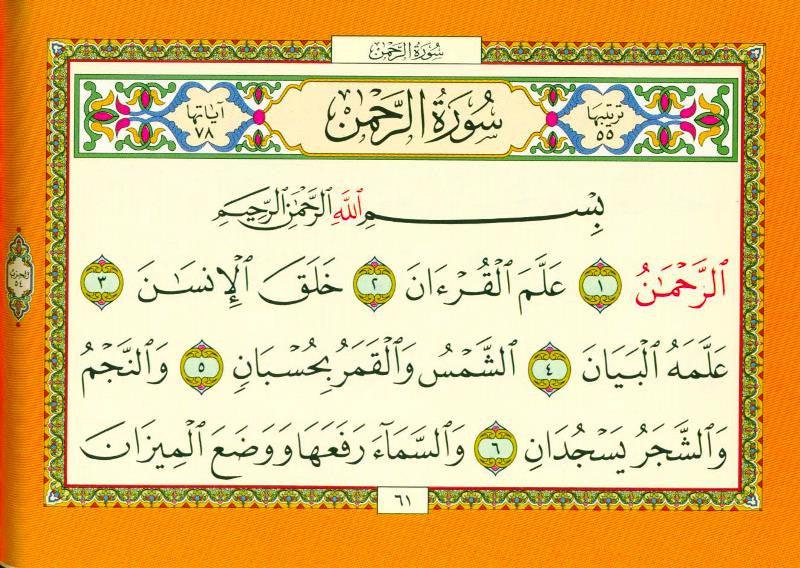 سُورَةُ الرَّحْمٰن
ترتيبها ٥٥ سُورَةُ الرَّحْمٰن آياتها ٧٨
بِسْمِ ٱللَّهِ ٱلرَّحْمَٰنِ ٱلرَّحِيمِ
ٱلرَّحْمَٰنُ ١ عَلَّمَ ٱلْقُرْءَانَ ٢ خَلَقَ ٱلْإِنسَٰنَ ٣
عَلَّمَهُ ٱلْبَيَانَ ٤ ٱلشَّمْسُ وَٱلْقَمَرُ بِحُسْبَانٍ ٥ وَٱلنَّجْمُ
وَٱلشَّجَرُ يَسْجُدَانِ ٦ وَٱلسَّمَآءَ رَفَعَهَا وَوَضَعَ ٱلْمِيزَانَ
٦١
٥٤